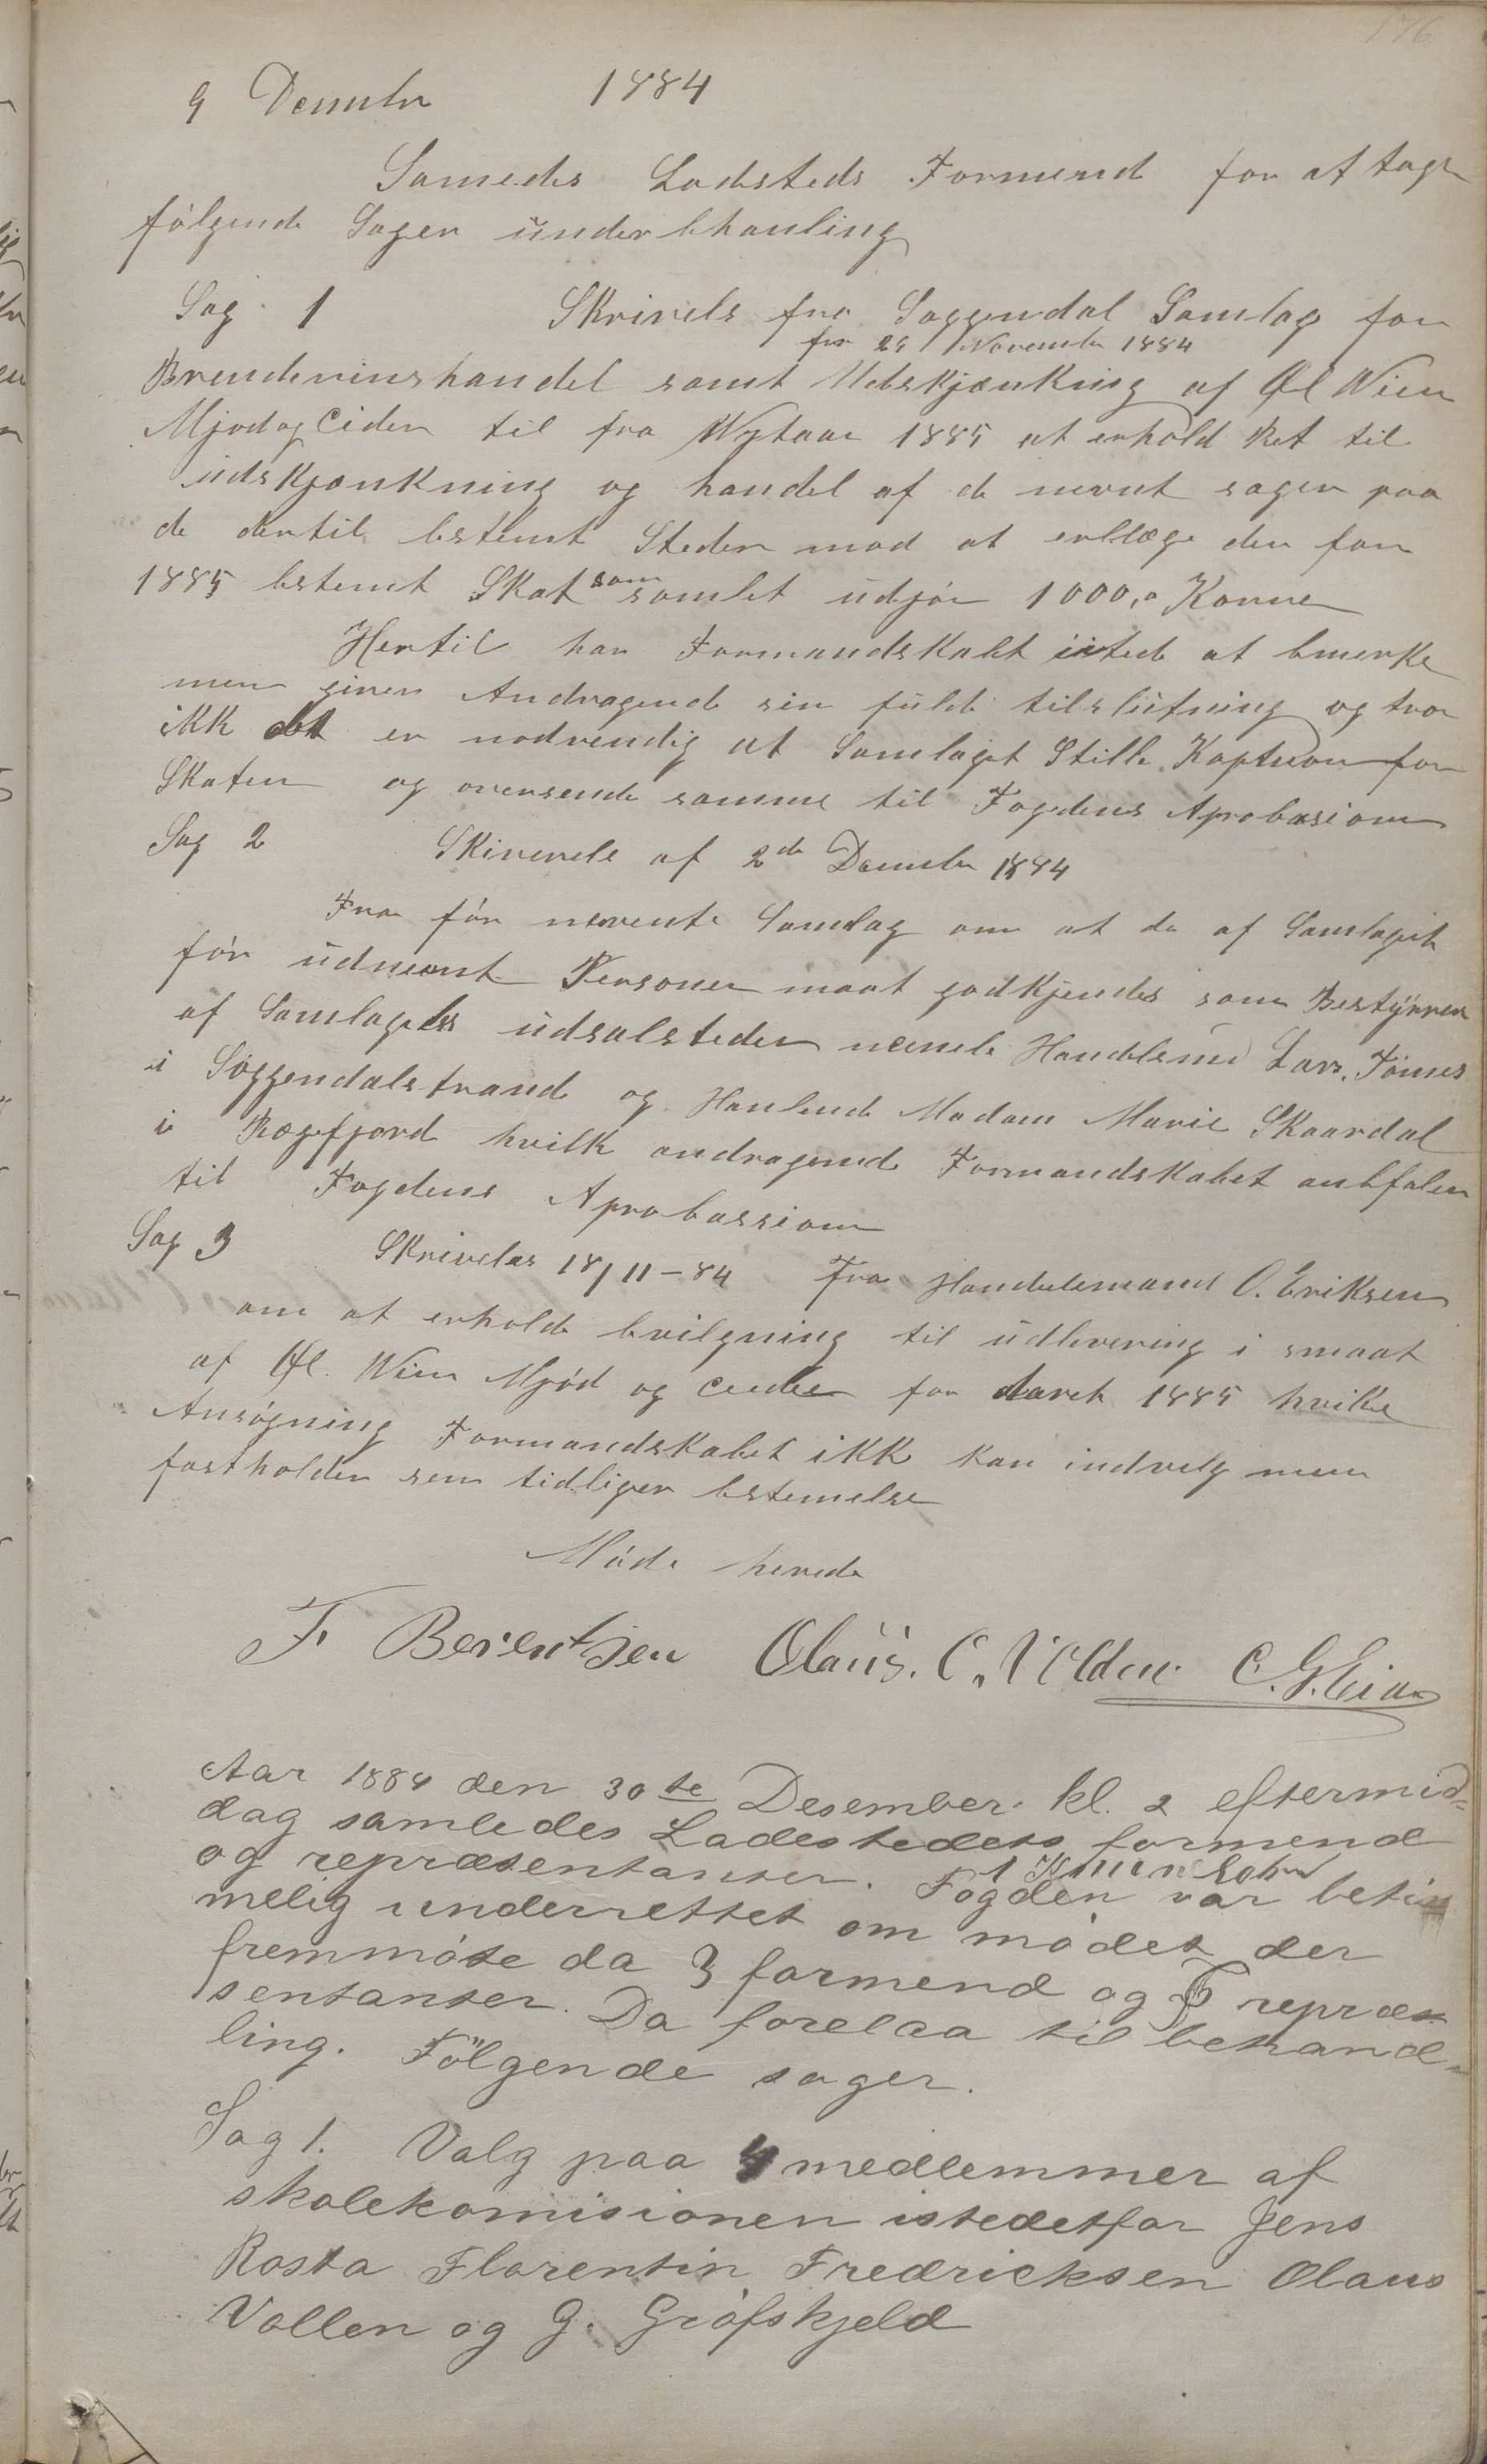 176
9 Desember 1884
Sameds Ladsteds Formend for at tage
følgende Sager under behanling
Sag 1 Skrivels fra Soggendal Samlag for
fra 29 November 1884
Brendevinshandel samt Udskjænkning af Øl Wiin
Mjod og Cider til fra Nytaar 1885 at erhold Ret til
udskjænkning og handel af de nevnt sager paa
de dertil bstemt Steder mod at erllæge den for
1885 bstemt Skat som samlet udjør 1000,0 Kroner
Hertil har Formandskabt intede at bmerke
men giver Andragende sin fulde tilslutning og tror
ikk det er nodvendig at Samlaget Stille Kaption for
Skaten og oversende samme til Fogdens Aprobasion
Sag 2 Skivevels af 2de December 1884
Fra før nevente Samlag om at de af Samlaget
før udnevnt Personer maat godkjendes som Bestyrrer
af Samlagets udsalsteder nemle Handelsmd Lars. Tønnes
i Soggendalstrand og Hanlende Madam Marie Skaardal
i Rægefjord hvilk andragende Formandskabet anbfaler
til Fogdens Aprobassion
Sag 3 Skrivelse 18/11-84 Fra Handelsmand O. Eriksen
om at erholde bvilgning til udlevering i smaat
af Øl. Wiin Mjød og ceider for daret 1885 hvilke
Ansøgning Formandskabet ikk kan indvelg men
fastholder sen tidliger bstemelse
Møde hevede
F Berentsen Olaus. C. Volden C. G. Eia
Aar 1884 den 30te Desember kl. 2 eftermid=
dag samledes Ladestedets formend
og repræsentanter. Fogden var betim
melig underrettet om mødet der
fremmøte da 3 formend og 6 repræ=
sentanter. Da forelaa til behand=
ling. Følgende sager.
Sag 1. Valg paa 4 medlemmer af
skolekomisionen istedetfor Jens
Rosta Florentin Fredricksen Olaus
Vollen og G. Grøfskjeld